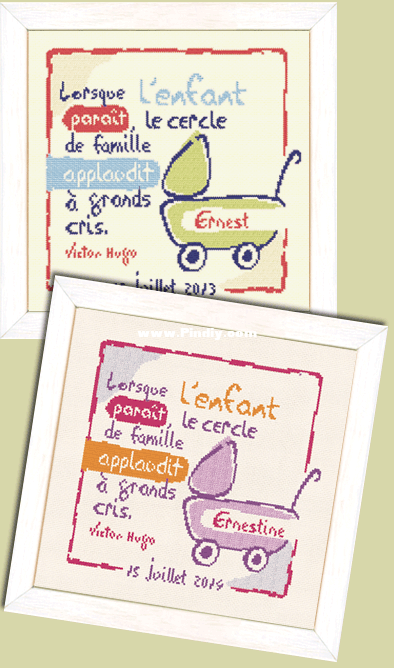 Lorsque l'enfant
paraît, le cercle
de famille
applaudit
à grands
cris.
Victor Hugo
Ernest
Juillet 2013
www.Pindiy.com
Lorsque l'enfant
paraît, le cercle
de famille
applaudit
à grands
cris.
Victor Hugo
Ernestine
15 Juillet 2014